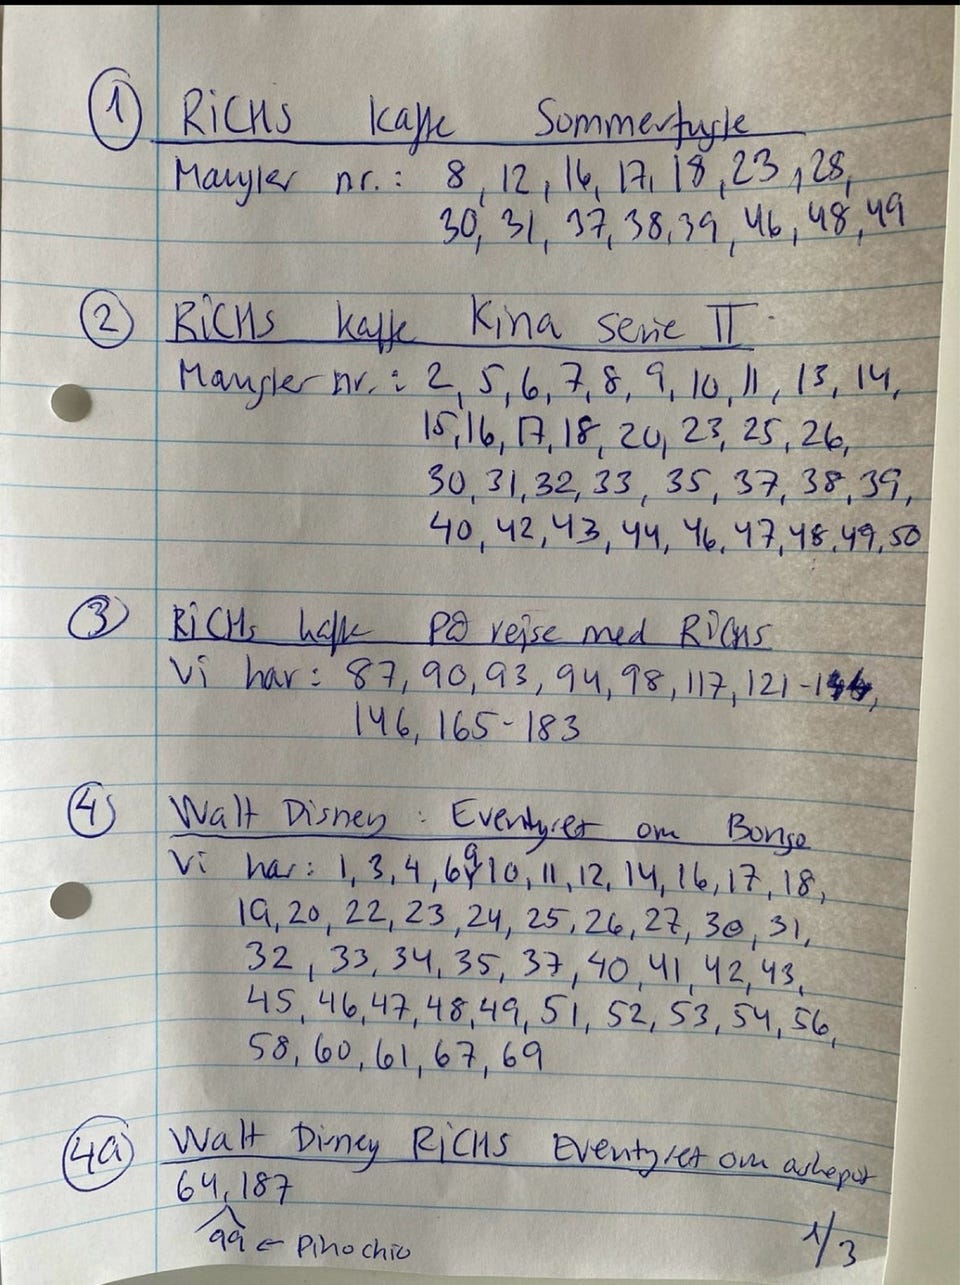 1 RiCHs kaffe Sommerfugle
Mangler nr.: 8, 12, 16, 17, 18, 23, 28,
30, 31, 37, 38, 39, 46, 48, 49
2 RiCHs kaffe Kina serie II
Mangler nr.: 2, 5, 6, 7, 8, 9, 10, 11, 13, 14,
15, 16, 17, 18, 20, 23, 25, 26,
30, 31, 32, 33, 35, 37, 38, 39,
40, 42, 43, 44, 46, 47, 48, 49, 50
3 RiCHs kaffe På rejse med RiCHS
Vi har: 87, 90, 93, 94, 98, 117, 121-
146, 165-183
4 Walt Disney: Eventyret om Bongo
Vi har: 1, 3, 4, 6, 9, 10, 11, 12, 14, 16, 17, 18,
19, 20, 22, 23, 24, 25, 26, 27, 30, 31,
32, 33, 34, 35, 37, 40, 41, 42, 43,
45, 46, 47, 48, 49, 51, 52, 53, 54, 56,
58, 60, 61, 67, 69
4a Walt Disney RiCHS Eventyret om askepot
64, 187
99 ← Pinochio
1/3